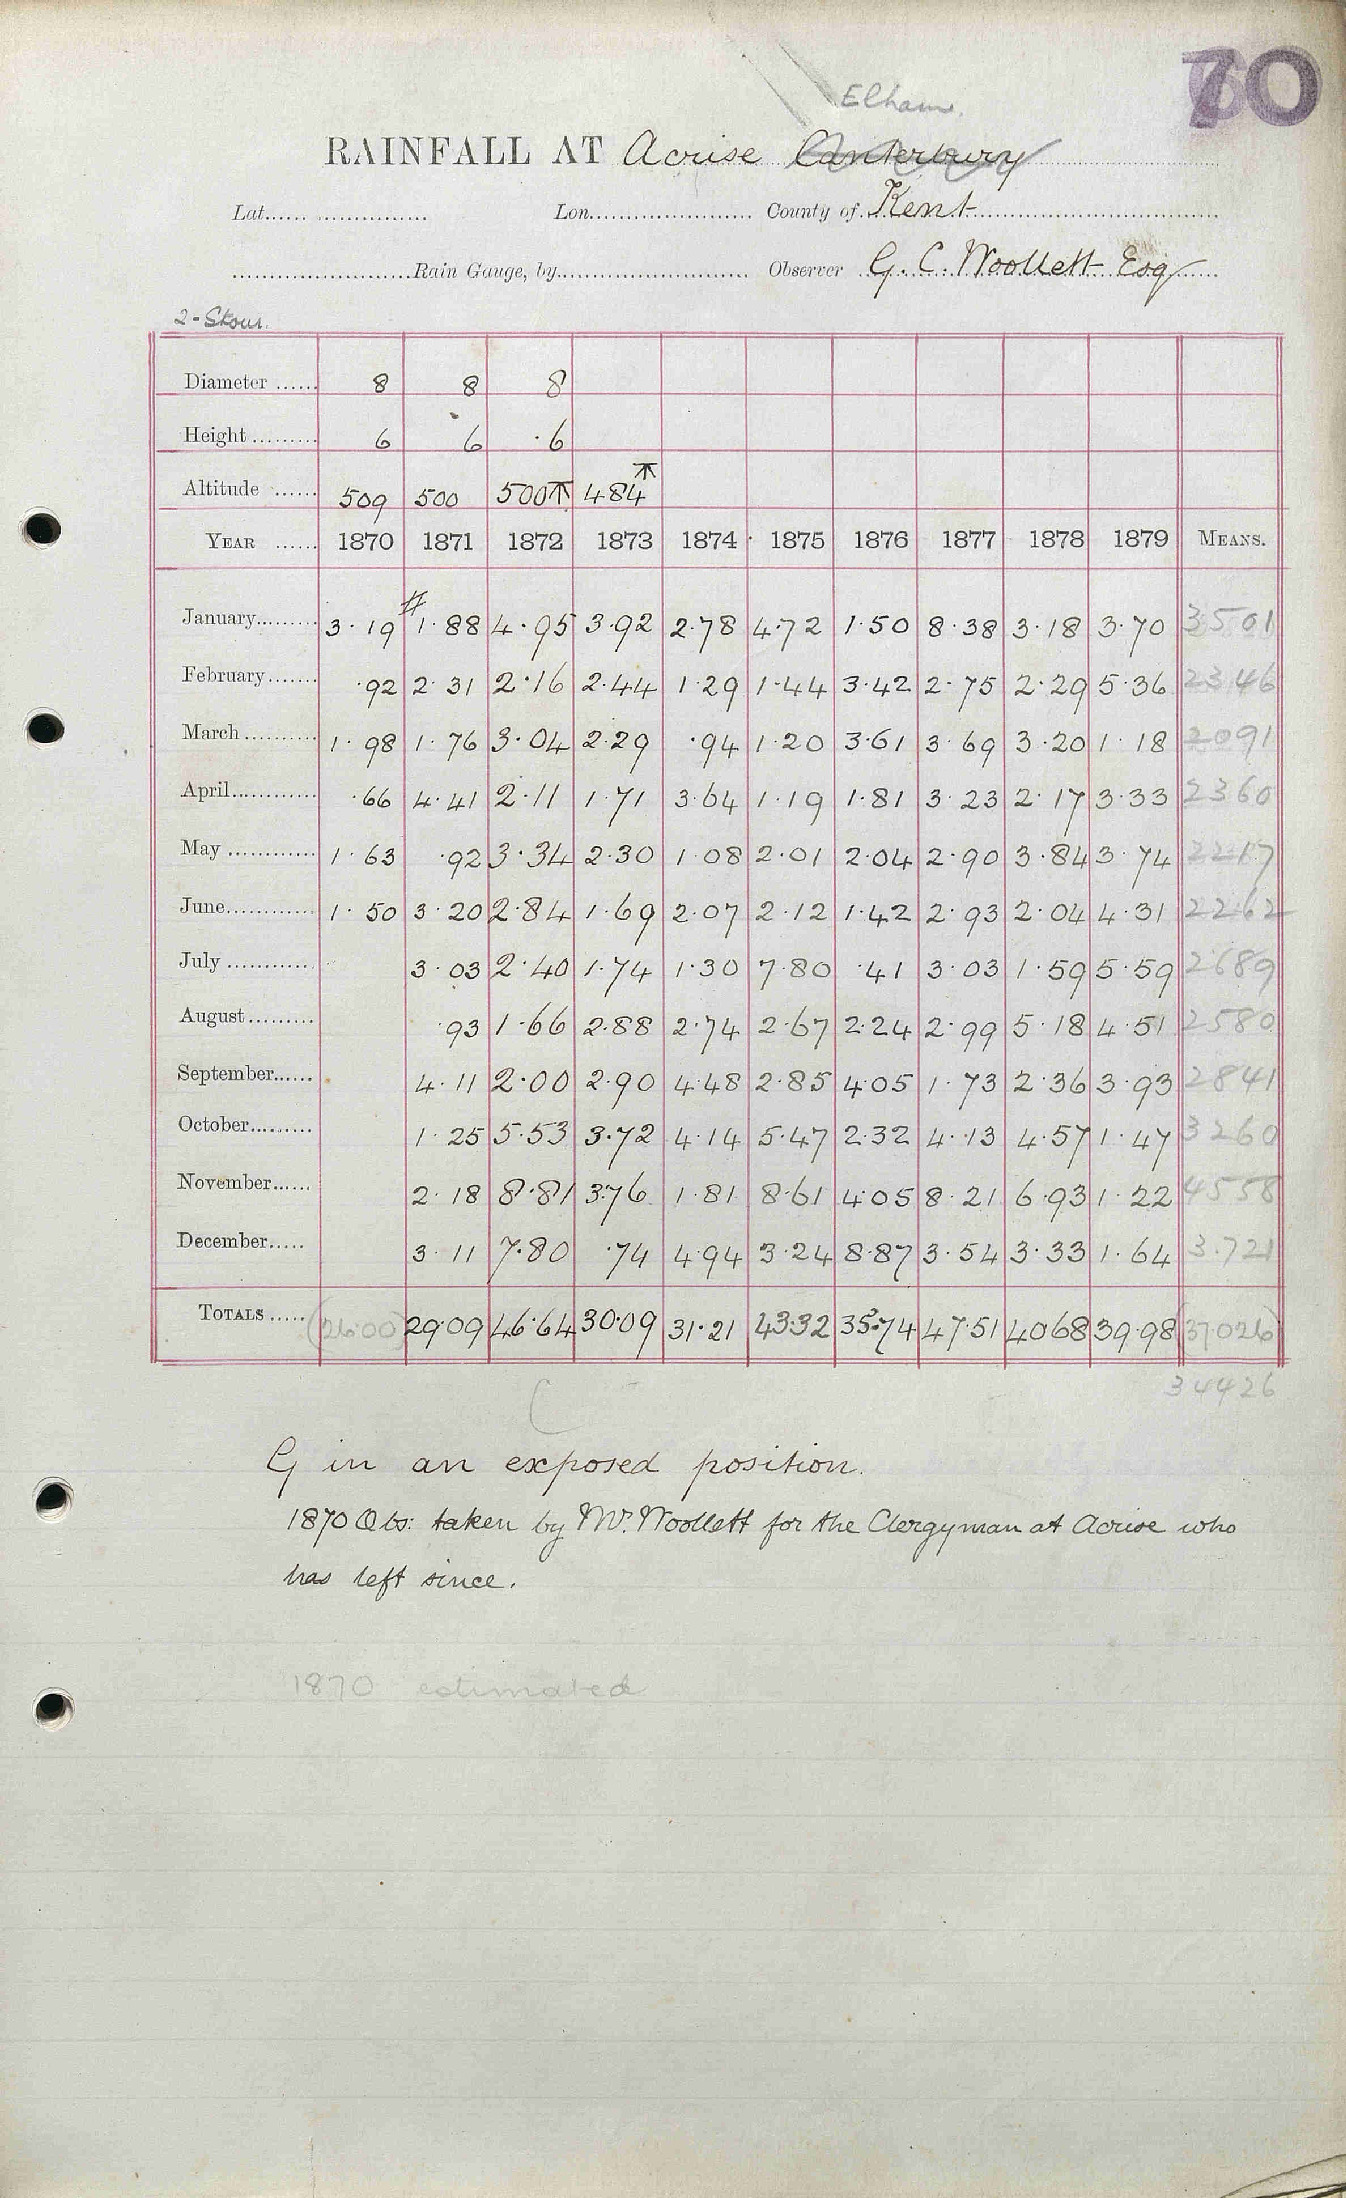 70
Elham
RAINFALL AT Acrise Canterbury
Lat. Lon. County of Kent
Rain Gauge, by Observer G. C. Woollett Esq
2 - Stour.
Diameter 8 8 8
Height 6 6 ·6
Altitude 509 500 500⊼ 484⊼
YEAR 1870 1871 1872 1873 1874 1875 1876 1877 1878 1879 MEANS.
January 3·19 #1·88 4·95 3·92 2·78 4·72 1·50 8·38 3·18 3·70 3501
February ·92 2·31 2·16 2·44 1·29 1·44 3·42 2·75 2·29 5·36 2346
March 1·98 1·76 3·04 2·29 ·94 1·20 3·61 3·69 3·20 1·18 2091
April ·66 4·41 2·11 1·71 3·64 1·19 1·81 3·23 2·17 3·33 2360
May 1·63 ·92 3·34 2·30 1·08 2·01 2·04 2·90 3·84 3·74 2217
June 1·50 3·20 2·84 1·69 2·07 2·12 1·42 2·93 2·04 4·31 2262
July 3·03 2·40 1·74 1·30 7·80 ·41 3·03 1·59 5·59 2689
August ·93 1·66 2·88 2·74 2·67 2·24 2·99 5·18 4·51 2580
September 4·11 2·00 2·90 4·48 2·85 4·05 1·73 2·36 3·93 2841
October 1·25 5·53 3·72 4·14 5·47 2·32 4·13 4·57 1·47 3260
November 2·18 8·81 3·76 1·81 8·61 4·05 8·21 6·93 1·22 4558
December 3·11 7·80 ·74 4·94 3·24 8·87 3·54 3·33 1·64 3.721
TOTALS (26·00) 29·09 46·64 30·09 31·21 43·32 35·74 47·51 40·68 39·98 (37·026)
34426
G in an exposed position.
1870 Obs: taken by Mr. Woollett for the Clergyman at Acrise who
has left since.
1870 estimated